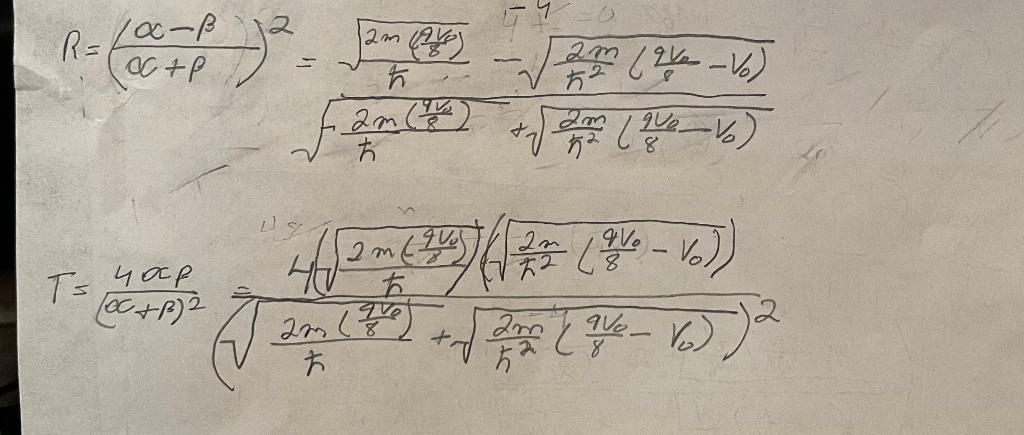 -4
R = ((α-β)/(α+β))² = (√(2m(9V₀/8))/ħ - √(2m/ħ² (9V₀/8 - V₀))) / (√(2m(9V₀/8)/ħ) + √(2m/ħ² (9V₀/8 - V₀)))
T = 4αβ/(α+β)² = 4(√(2m(9V₀/8)/ħ))(√(2m/ħ² (9V₀/8 - V₀))) / (√(2m(9V₀/8)/ħ) + √(2m/ħ² (9V₀/8 - V₀)))²